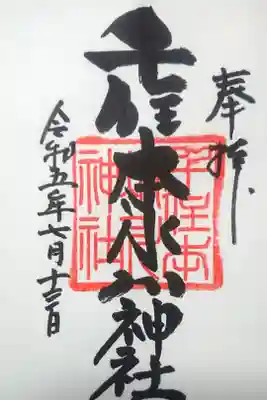 奉拝
千住本氷川神社
千住本
氷川
神社
令和五年七月十三日